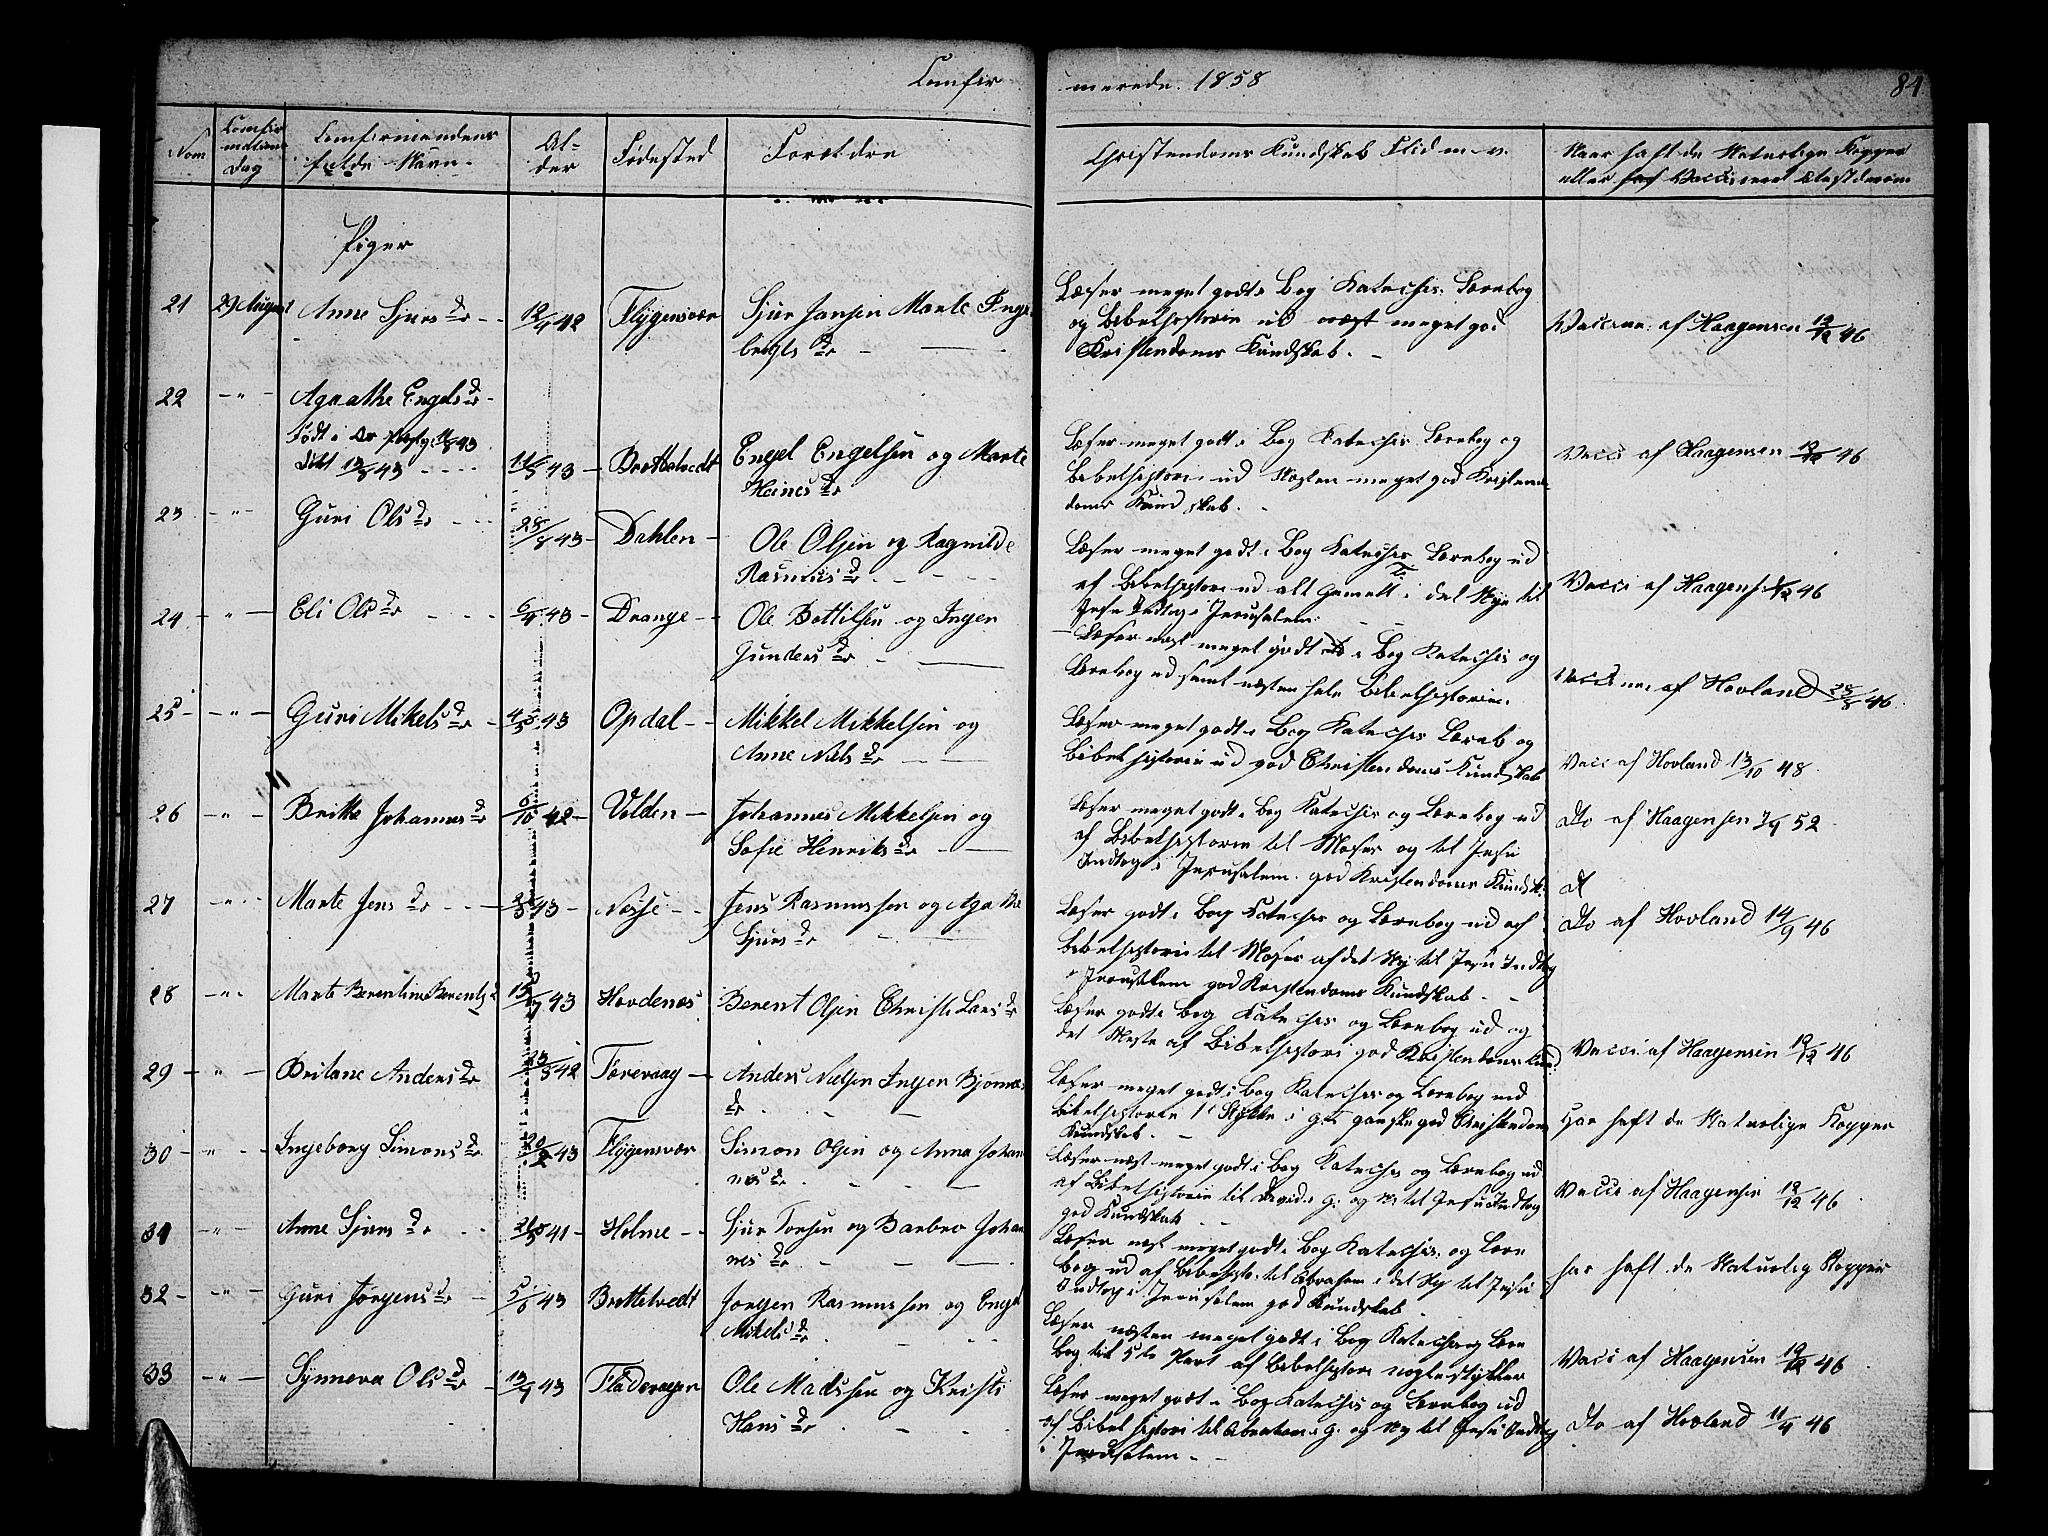 Comfir
merede. 1858
84
Nom
Comfir
mations
Dag
Comfirmandens
fulde Navn
Al-
der
Fødested
Forældre
Christendoms Kundskab Flid m. v.
Naar haft de Naturlige Kopper
eller Vaccineret
Piger
21 29 August Anne Sjurs dr 12/4 42 Flygensvær Sjur Jansen Marte Inge
brigts dr
Læser meget godt i Bog Katechis. Lærebog
og Bibelhistorie ud meget god
Kristendoms Kundskab.
Vaccine. af Haagensen 12/12 46
22 -"- Agaathe Engels dr
Født i
Døbt 13/8 43 43 Brattetvedt Engel Engelsen og Marte
Heines dr
Læser meget godt i Bog Katechis Lærebog og
Bibelhistori ud Næsten meget god Kristen
doms Kundskab.
Vacci af Haagensen 12/12 46
23 -"- Guri Ols dr 28/8 43 Dahlen Ole Olsen og Ragnilde
Rasmus dr
Læser meget godt i Bog Katechis Lærebog ud
af Bibelhistori ud alt Gamelt i det Nye til
Jesu Indtog i Jerusalem.
Vacci af Haagensen 46
24 -"- Eli Ols dr 6/4 43 Drange Ole Bottilsen og Inger
Gunders dr
Læser næst meget godt i Bog Katechis og
Lærebog ud samt næsten hele Bibelhistorien.
Vaccine. af Hovland 46
25 -"- Guri Mikels dr 4/5 43 Opdal Mikkel Mikkelsen og
Anne Niels dr
Læser meget godt i Bog Katechis Læreb og
Bibelhistorie ud god Christendoms Kundskab
Vacc af Hovland 13/10 48
26 -"- Britha Johannes dr 6/10 42 Volden Johannes Mikkelsen og
Sofie Henriks dr
Læser meget godt i Bog Katechis og Lærebog ud
af Bibelhistorie til Moses og til Jesu
Indtog i Jerusalem. god Kristendoms Kundsk.
Do af Haagensen 7/4 52
27 -"- Marte Jens dr 43 Nesse Jens Rasmussen og Agathe
Sjurs dr
Læser godt i Bog Katechis og Lærebog ud af
Bibelhistorie til Moses af det Ny til Jesu Indtog
i Jerusalem god Kristendoms Kundskab
Do af Hovland 14/9 46
28 -"- Marte Berentine Berents dr 43 Hovdenes Berent Olsen Christi Lars dr
Læser godt i Bog Katechis og Lærebog ud og
det Meste af Bibelhistori god Kristendoms Kund
Vacci. af Haagensen 12/12 46
29 -"- Britane Anders dr 42 Færevaag Anders Nielsen Inger Bjørnæs
dr
Læser meget godt i Bog Katechis og Lærebog ud
Bibelhistorie 1ste Stykke i gt. ganske god Christendom
Kundskab.
Har haft de Naturlige Kopper
30 -"- Ingeborg Simons dr 20/2 43 Flygensvær Simon Olsen og Anna Johan
nes dr
Læser næst meget godt i Bog Katechis og Lærebog ud
af Bibelhistorie til David i g. og Ny til Jesu Indtog
god Kundskab
Vacci af Haagensen 12/12 46
31 -"- Anne Sjurs dr 41 Holme Sjur Torsen og Barbro Johan
nes dr
Læser næst meget godt i Bog Katechis. og Lære
bog ud af Bibelhisto. til Abraham i det Ny til Jesu
Indtog i Jerusalem god Kundskab
har haft de Naturlig Kopper
32 -"- Guri Jørgens dr 43 Brattetvedt Jørgen Rasmussen og Engel
Mikels dr
Læser næsten meget godt i Bog Katechis og Lære
bog til 5te Part af Bibelhistori nogle stykker
Vacci af Haagensen 12/12 46
33 -"- Synneva Ols dr 43 Fladevagen Ole Madssen og Kristi
Hans dr
Læser meget godt i Bog Katechis og Lærebog ud
af Bibelhistori til Abraham i g. og Ny til Jesu Indtog
i Jerusalem
Do af Hovland 11/4 46